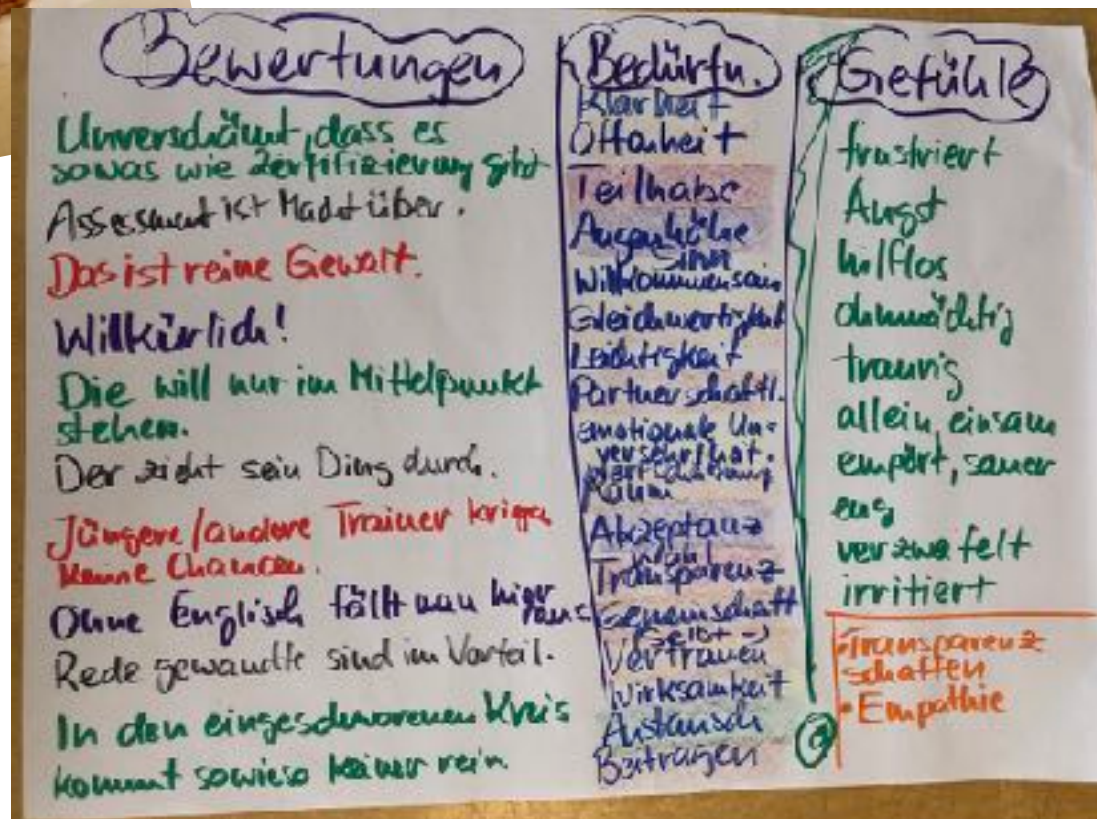 Bewertungen
Unverschämt, dass es
sowas wie Zertifizierung gibt
Assessment ist Macht über.
Das ist reine Gewalt.
Willkürlich!
Die will nur im Mittelpunkt
stehen.
Der zieht sein Ding durch.
Jüngere/andere Trainer kriegen
keine Chancen.
Ohne Englisch fällt man hier
raus
Rede gewandte sind im Vorteil.
In den eingeschworenen Kreis
kommt sowieso keiner rein.
Bedürfn.
Klarheit
Offenheit
Teilhabe
Augenhöhe
Sinn
Willkommensein
Gleichwertigkeit
Leichtigkeit
Partnerschaftl.
emotionale Un-
versehrthat.
Raum
Akzeptanz
Wahl
Transparenz
Gemeinschaft
Selbst →
Vertrauen
Wirksamkeit
Austausch
Beitragen
Gefühle
frustriert
Angst
hilflos
ohnmächtig
traurig
allein, einsam
empört, sauer
eng
verzwafelt
irritiert
• Transparenz
schaffen
• Empathie